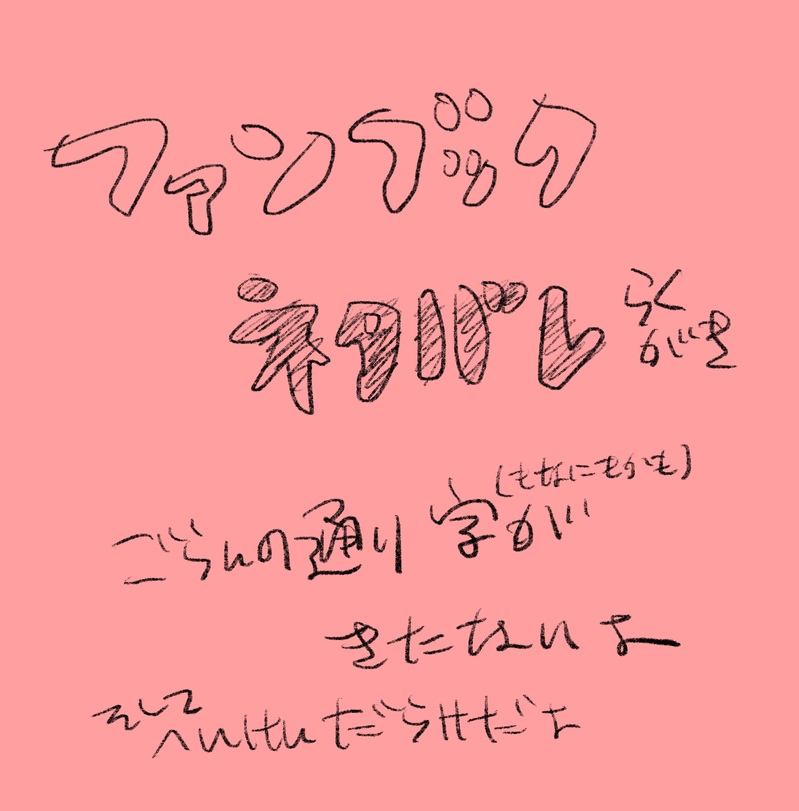 ファンブック
ネタバレ らくがき
ごらんの通り 字が(もなにもかも)
きたないよー
そして へんけんだらけだよ